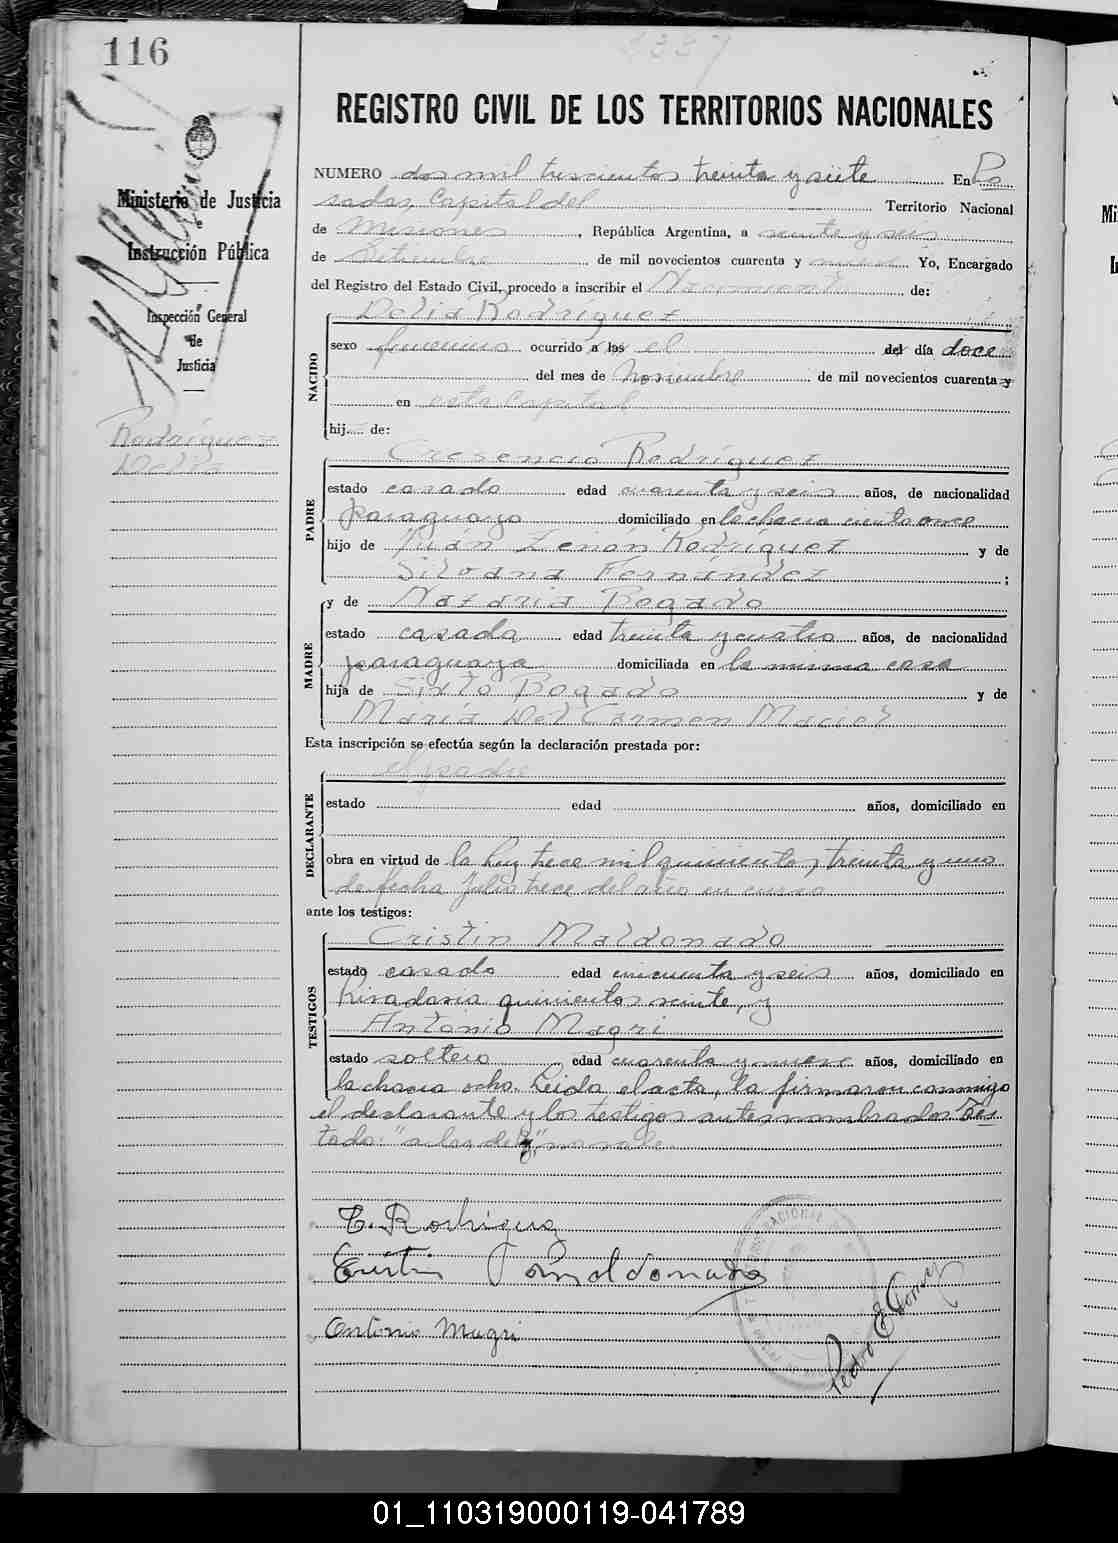 116
2337
REGISTRO CIVIL DE LOS TERRITORIOS NACIONALES
Ministerio de Justicia
Instrucción Pública
Inspección General
de
Justicia
Rodríguez
Delia
NUMERO dos mil trescientos treinta y siete En Po
sadas, Capital del Territorio Nacional
de Misiones, República Argentina, a veinte y seis
de Setiembre de mil novecientos cuarenta y nueve Yo, Encargado
del Registro del Estado Civil, procedo a inscribir el Nacimiento de:
NACIDO
Delia Rodríguez
sexo femenino ocurrido a las el del día doce
del mes de Noviembre de mil novecientos cuarenta y
en esta Capital
hij de:
PADRE
Cresencio Rodríguez
estado casado edad cuarenta y seis años, de nacionalidad
paraguayo domiciliado en la chacra ciento once
hijo de Juan Zenón Rodríguez y de
Silvana Fernández ;
MADRE
y de Nazaria Bogado
estado casada edad treinta y cuatro años, de nacionalidad
paraguaya domiciliada en la misma casa
hija de Sixto Bogado y de
María Del Carmen Maciel
Esta inscripción se efectúa según la declaración prestada por:
DECLARANTE
el padre
estado edad años, domiciliado en
obra en virtud de la ley trece mil quinientos treinta y uno
de fecha Julio trece del año en curso
ante los testigos:
TESTIGOS
Cristin Maldonado
estado casado edad cincuenta y seis años, domiciliado en
Rivadavia quinientos veinte, y
Antonio Magri
estado soltero edad cuarenta y nueve años, domiciliado en
la chacra ocho. Leida el acta, la firmaron conmigo
el declarante y los testigos antes nombrados Tes
tado: "a las del y", no vale
C. Rodríguez
Cristin Maldonado
Antonio Magri
Pedro E.
01_110319000119-041789